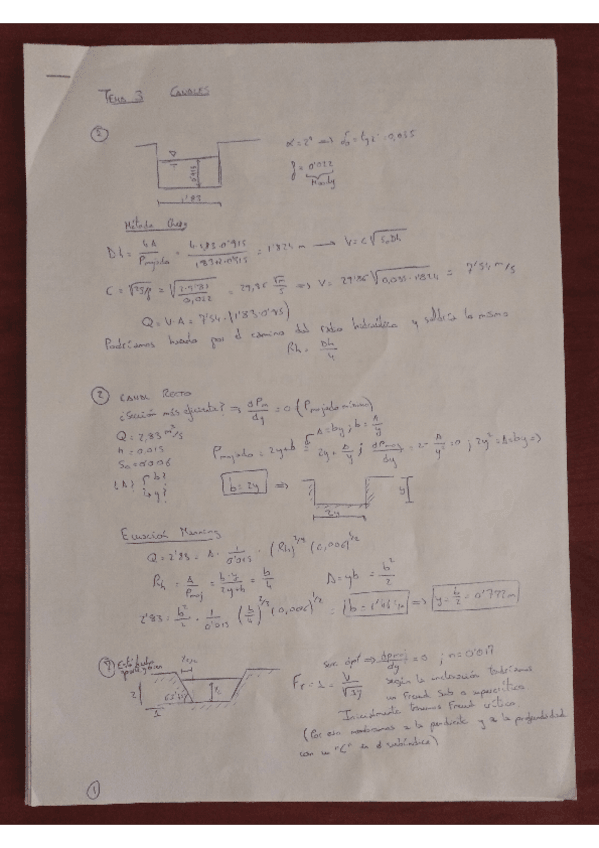 TEMA 3 CANALES
①
α = 2° ⇒ S₀ = tg 2° = 0,035
f = 0'022
Moody
0'915
1'83
Método Chezy
Dh = 4A / Pmojado = 4·1,83·0'915 / 1'83+2·0'915 = 1'824 m → V = C√S₀Dh
C = √2g/f = √2·9'81/0,022 = 29,86 √m/s ⇒ V = 29'86 √0,035·1'824 = 7'54 m/s
Q = V·A = 7'54·(1'83·0'915)
Podríamos hacerlo por el camino del radio hidráulico y saldría lo mismo
Rh = Dh/4
② CANAL RECTO
¿Sección más eficiente? ⇒ dPm/dy = 0 (Pmojado mínimo)
Q = 2,83 m³/s
A = by; b = A/y
n = 0,015
Pmojado = 2y+b = 2y + A/y; dPmoj/dy = 2 - A/y² = 0; 2y² = A = by ⇒
S₀ = 0'006
¿A? b? y?
b = 2y ⇒
y
2y
Ecuación Manning
Q = 2'83 = A · 1/0'015 · (Rh)^2/3 (0,006)^1/2
Rh = A/Pmoj = b·y/2y+b = b/4 A = yb = b²/2
2'83 = b²/2 · 1/0'015 (b/4)^2/3 (0,006)^1/2 = ⇒ y = b/2 = 0'772 m
sec. ópt ⇒ dPmoj/dy = 0; n = 0'017
Fr = 1 = V/√gy
según la inclinación tendríamos
un Freud sub o supercrítico
Inicialmente tenemos Freud crítico
(Por eso nombramos a la pendiente y a la profundidad
con un "c" en el subíndice)
①